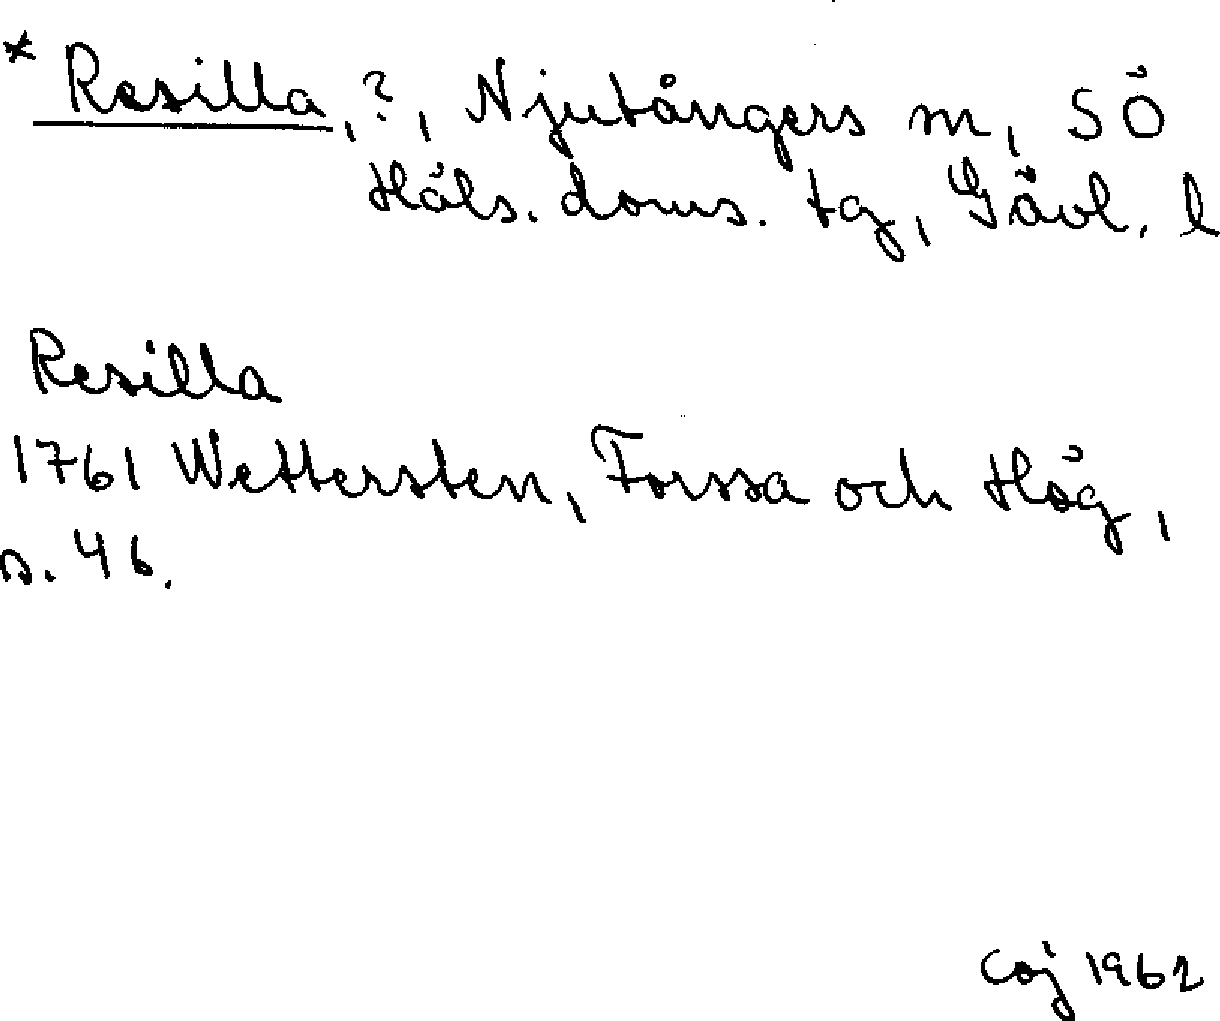 * Resilla, ?, Njutångers m, SÖ
Häls. doms. tg, Gävl. l
Resilla
1761 Wettersten, Forssa och Hög,
s. 46.
Coj 1962